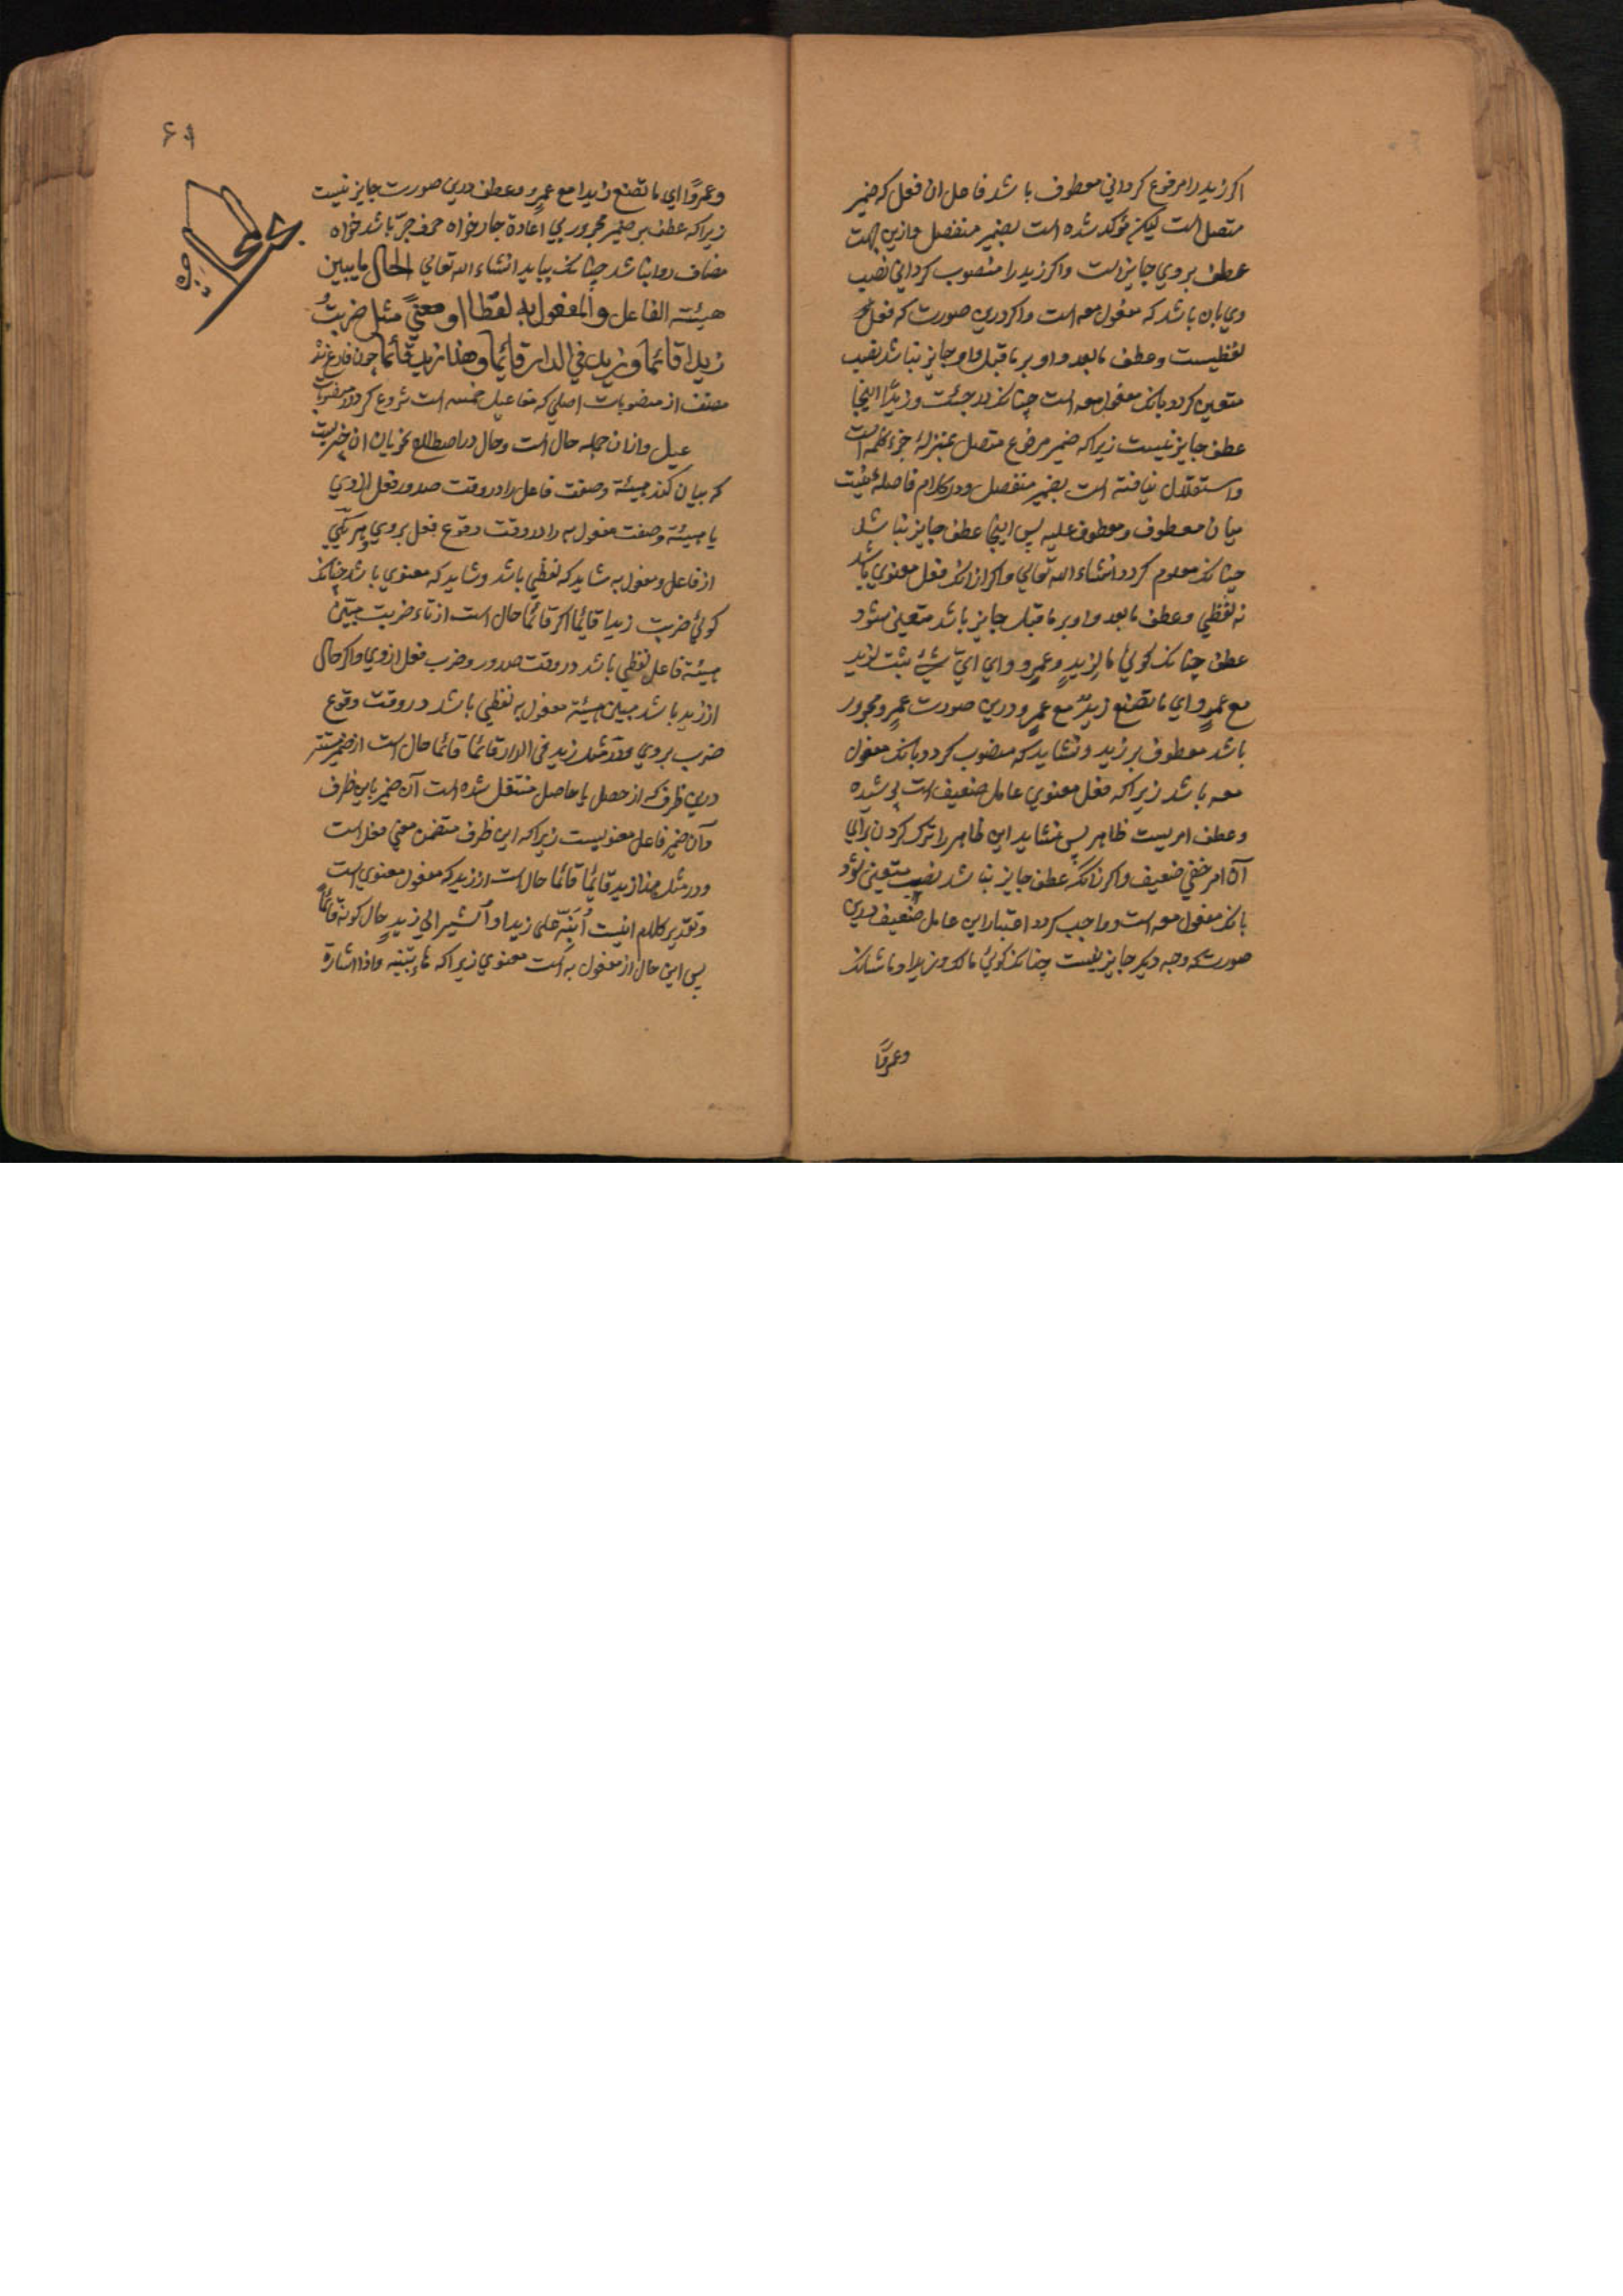 اکر زید را مرفوع کردانی معطوف باشد فاعل ان فعل که ضمیر
متصل است لیکن مؤکد شده است بضمیر منفصل وازین جهت
عطف بر وی جایز است واکر زید را منصوب کردانی نصب
وی بان باشد که مفعول معه است واکر درین صورت که فعل
لفظیست وعطف مابعد واو بر ماقبل واو جایز نباشد نصب
متعین کردد بانک مفعول معه است چنانک در جئت وزیدًا اینجا
عطف جایز نیست زیراکه ضمیر مرفوع متصل بمنزلهٔ جزء کلمه است
واستقلال نیافته است بضمیر منفصل ودر کلام فاصلهٔ نیست
میان معطوف ومعطوف علیه پس اینجا عطف جایز نباشد
چنانک معلوم کردد انشاء الله تعالی واکر ازانک فعل معنوی باشد
نه لفظی وعطف مابعد واو بر ماقبل جایز باشد متعین شود
عطف چنانک کوئی مالزیدٍ وعمرٍو وای ایّ شیٔ ثبت لزید
مع عمرٍو ای ما تصنع زیدٌ مع عمرٍو ودرین صورت عمرٍو مجرور
باشد معطوف بر زید ونشاید که منصوب کردد بانک مفعول
معه باشد زیراکه فعل معنوی عامل ضعیف است پوشیده
وعطف امریست ظاهر پس نشاید این ظاهر را ترک کردن برای
آن امر خفی ضعیف واکر زانکه عطف جایز نباشد نصب متعین شود
بانک مفعول معه است وواجب کردد اعتبار این عامل ضعیف درین
صورت که وجه دیکر جایز نیست چنانک کوئی مالک وزیدا وماشانک
وعمرًوا
۶۹
وعمرًوا ای ما تصنع زیدا مع عمرٍو وعطف درین صورت جایز نیست
زیراکه عطف بر ضمیر مجرور بی اعادهٔ جار خواه حرف جرّ باشد خواه
مضاف روا نباشد چنانک بیاید انشاء الله تعالی الحال ما یبین
هیئته الفاعل والمفعول به لفظا او معنیً مثل ضربتُ
زیدا قائما وزید فی الدار قائما وهذا زید قائما چون فارغ شد
مصنف از منصوبات اصلی که مفاعیل خمسه است شروع کرد در
وازان جمله حال است وحال در اصطلاح نحویان ان چیزیست
که بیان کند هیئة وصفت فاعل را در وقت صدور فعل از وی
یا هیئة وصفت مفعول به را در وقت وقوع فعل بروی وهر یکی
از فاعل ومفعول به شاید که لفظی باشد وشاید که معنوی باشد چنانک
کوئی ضربت زیدا قائما اکر قائما حال است از تاء ضربت مبیّن
هیئة فاعل لفظی باشد در وقت صدور وضرب فعل ازوی واکر حال
از زید باشد مبیّن هیئة مفعول به لفظی باشد در وقت وقوع
ضرب بروی ودر مثل زید فی الدار قائما قائما حال است از ضمیر مستتر
درین ظرف که از حصل یا حاصل منتقل شده است آن ضمیر باین ظرف
وآن ضمیر فاعل معنویست زیراکه این ظرف متضمن معنی فعل است
ودر مثل هذا زید قائما قائما حال است از زید که مفعول معنوی است
وتقدیر کلام اینست اُنَبِّه علی زیدا واُشیر الی زیدٍ حال کونه قائماً
پس این حال از مفعول به است معنوی زیراکه هاء تنبیه وذا اشارة